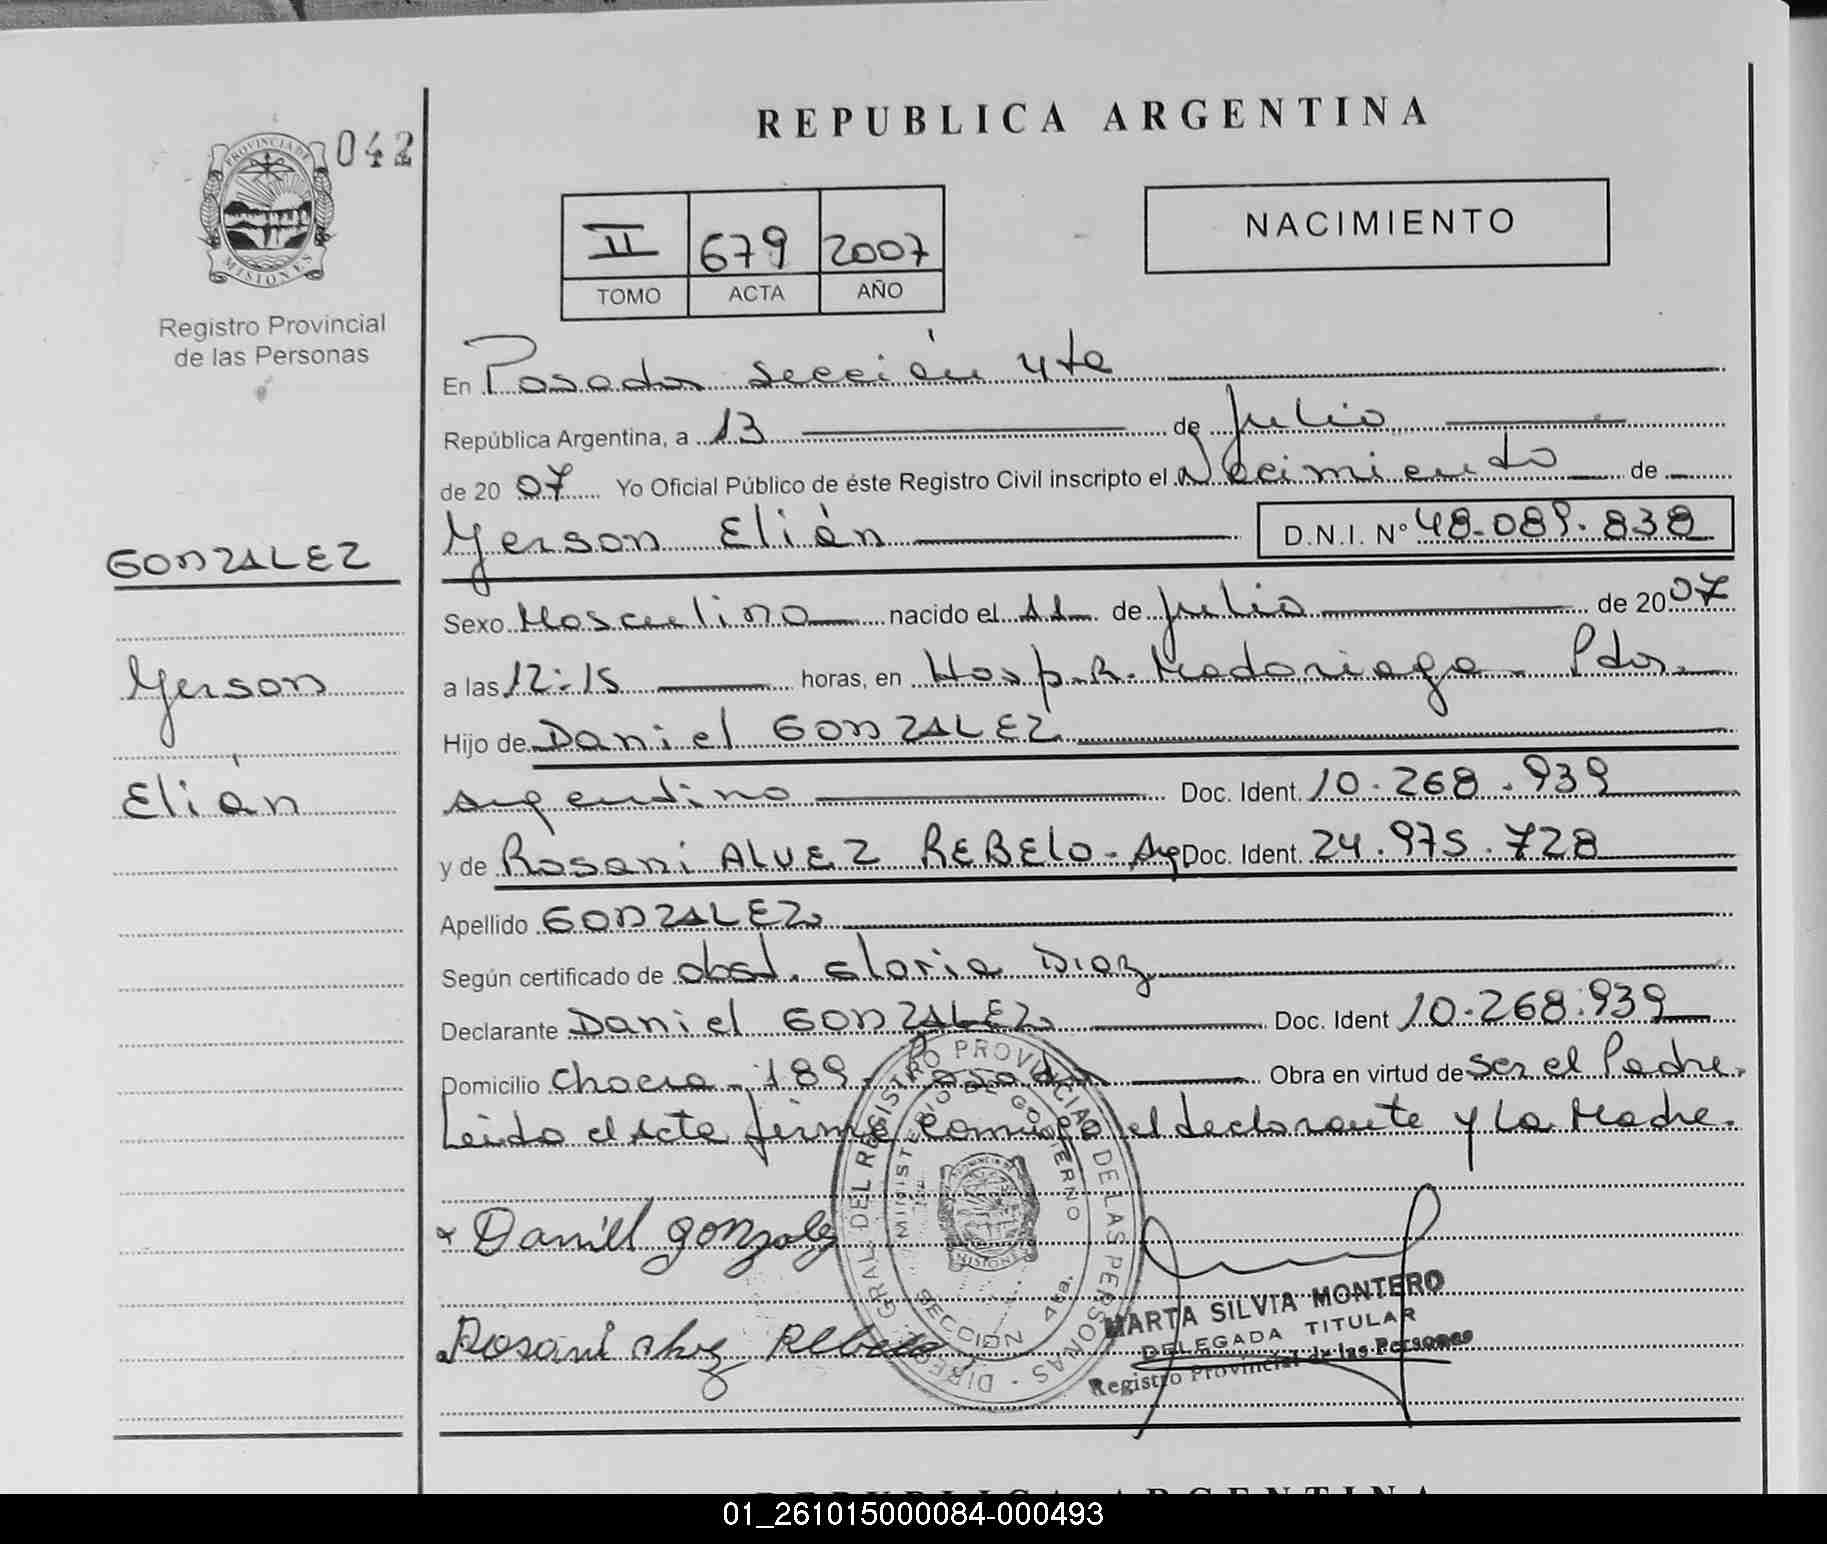 REPUBLICA ARGENTINA
042
PROVINCIA DE
MISIONES
Registro Provincial
de las Personas
II 679 2007
TOMO ACTA AÑO
NACIMIENTO
En Posadas sección 4ta
República Argentina, a 13 de Julio
de 2007 Yo Oficial Público de éste Registro Civil inscripto el Nacimiento de
Yerson Elián D.N.I. Nº 48.089.838
GONZALEZ
Yerson
Elián
Sexo Masculino nacido el 11 de Julio de 2007
a las 12:15 horas, en Hosp. R. Madariaga - Pdas.
Hijo de Daniel GONZALEZ
argentino Doc. Ident. 10.268.939
y de Rosani ALVEZ REBELO - Arg Doc. Ident. 24.975.728
Apellido GONZALEZ
Según certificado de obst. Gloria Diaz
Declarante Daniel GONZALEZ Doc. Ident 10.268.939
Domicilio Chacra - 189 - Posadas Obra en virtud de ser el Padre.
Leido el acta firma conmigo el declarante y la Madre.
Daniel gonzalez
Rosani Alvez Rebelo
DIREC. GRAL. DEL REGISTRO PROVINCIAL DE LAS PERSONAS
MINISTERIO DE GOBIERNO
SECCION 4ta.
MISIONES
MARTA SILVIA MONTERO
DELEGADA TITULAR
Registro Provincial de las Personas
REPUBLICA ARGENTINA
01_261015000084-000493